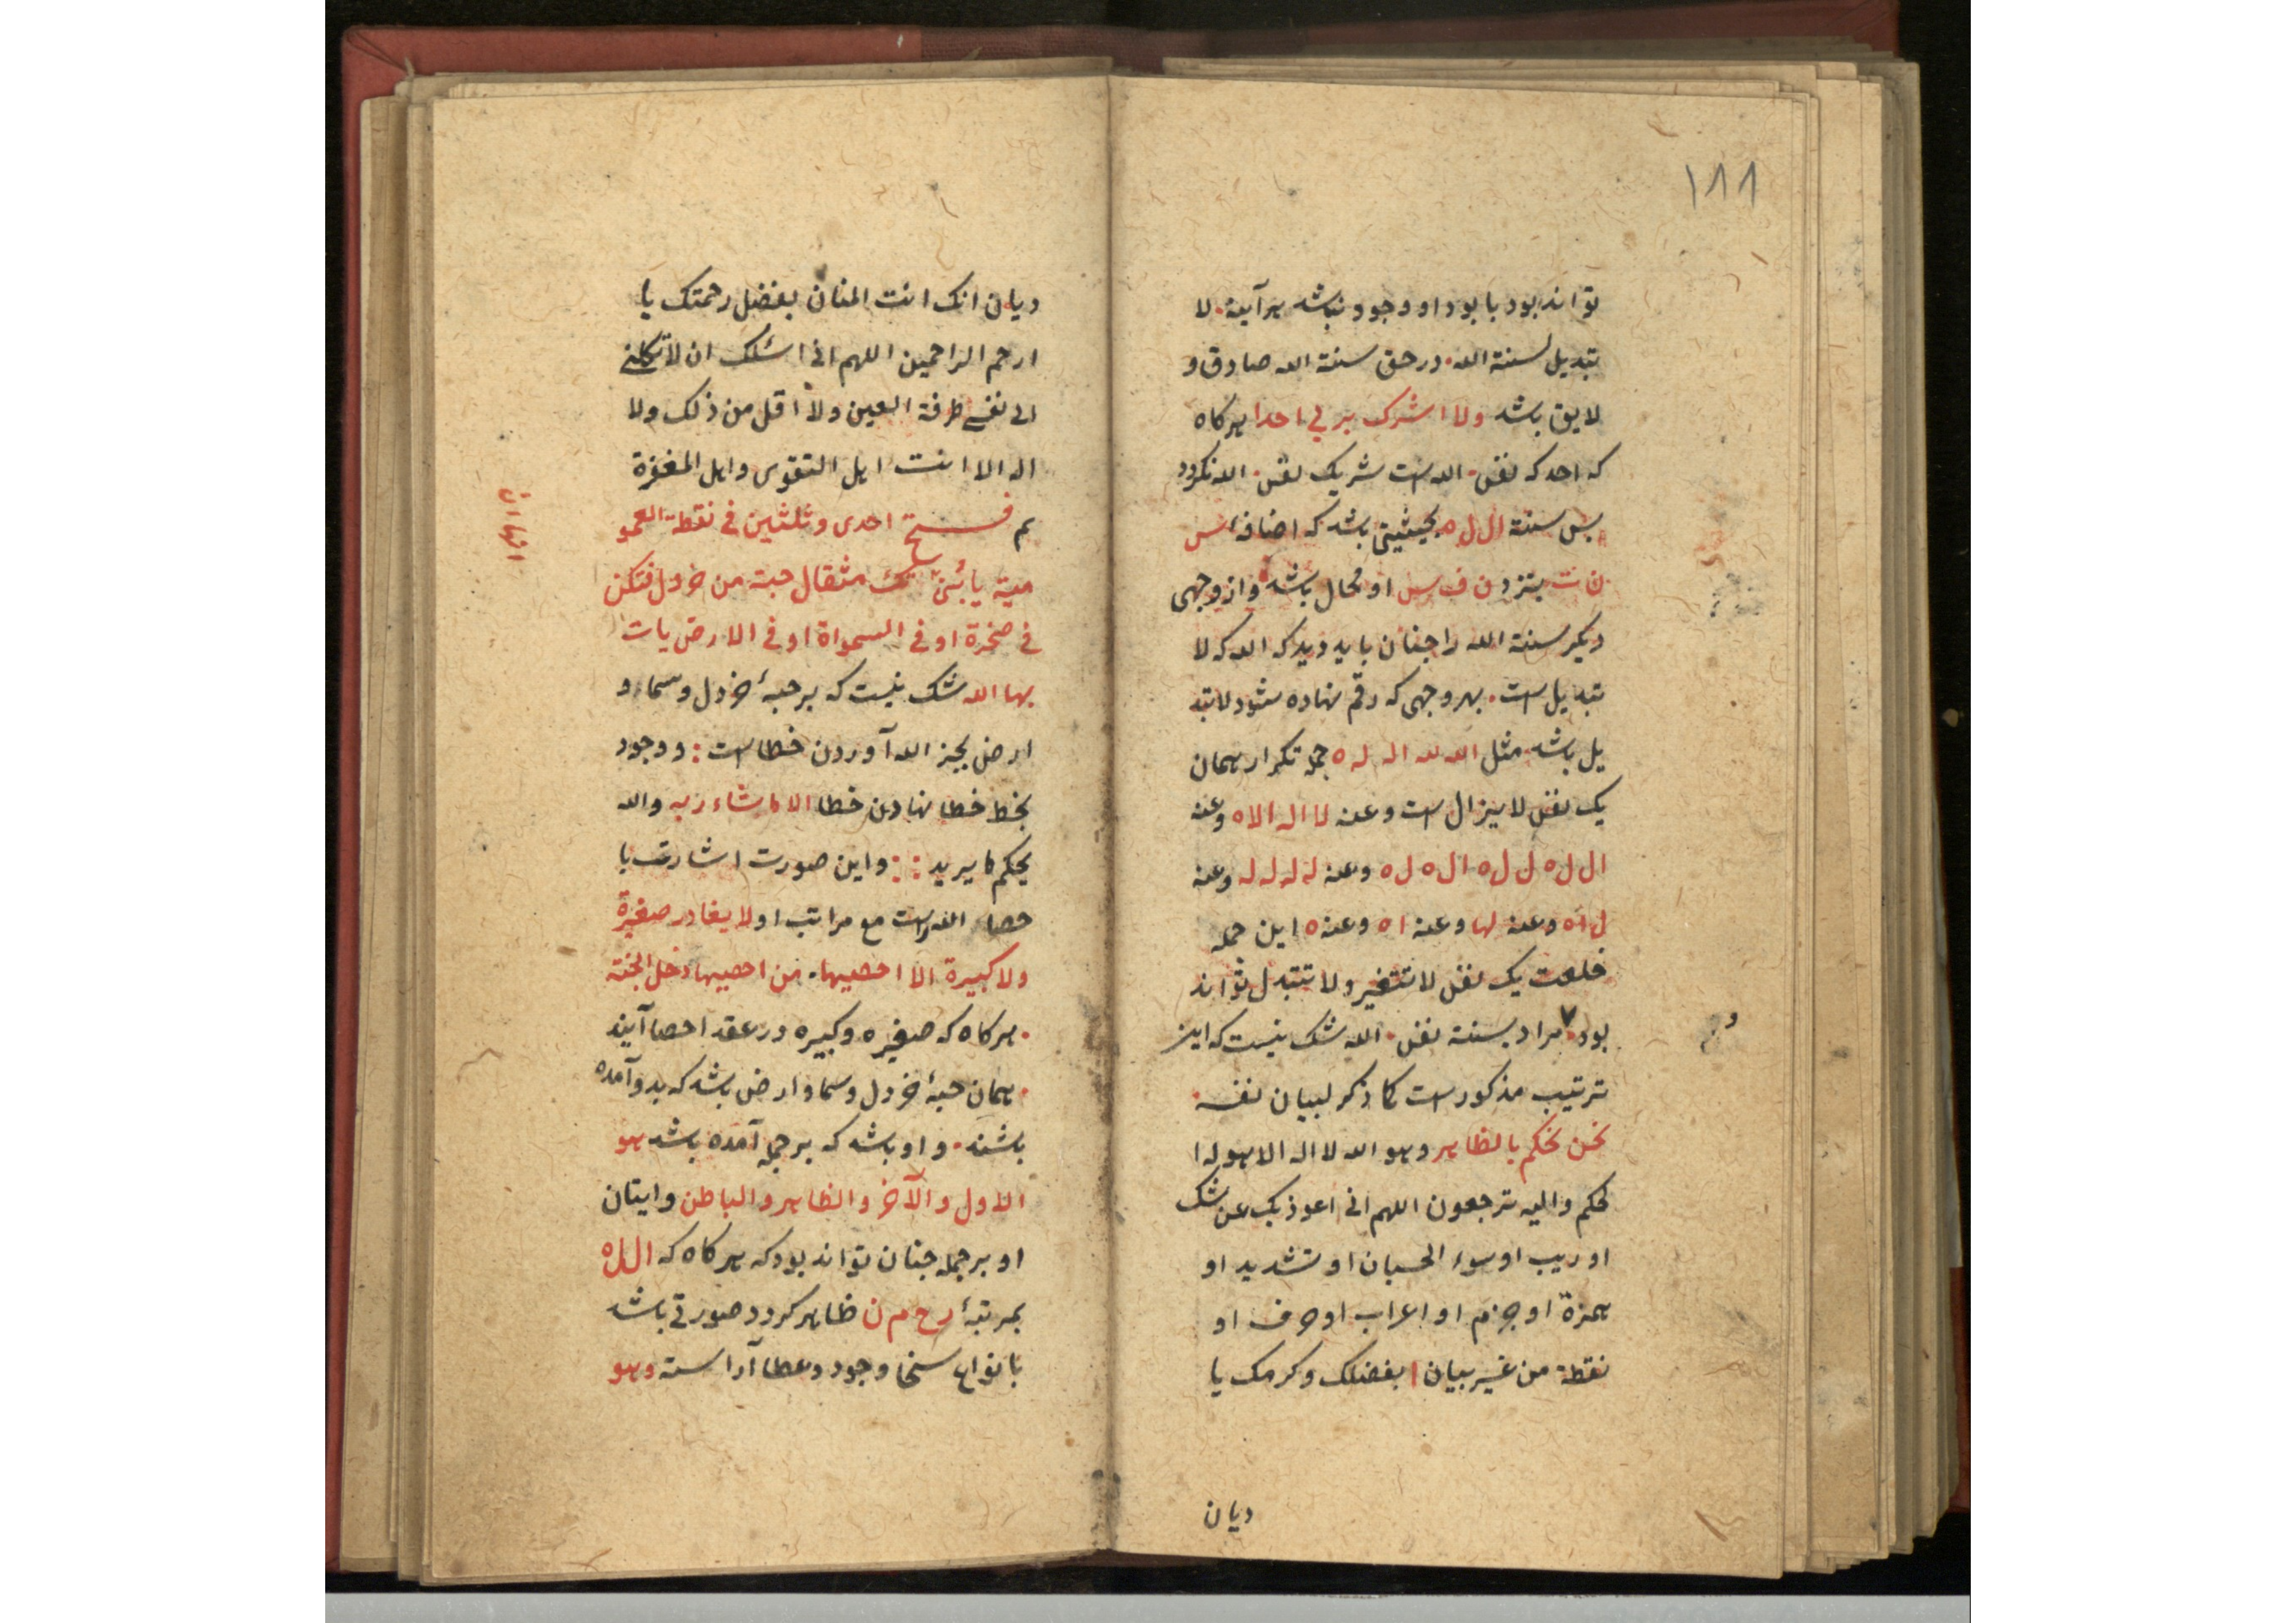 ١٨٨
تواند بود با بود او وجود نباشد هر آینه. لا
تبدیل لسنة الله. در حق سنة الله صادق و
لایق باشد ولا اشرک بربی احدا هرکاه
که احد که نفس. الله است شریک نفس. الله نکردد
بس سنة ال ل ه بحیثیتی باشد که اضافه اس
ن ت بنزد ن ف س او محال باشد و از وجهی
دیکر سنة الله را جنان باید دید که الله که لا
تبدیل است. بهر وجهی که رقم نهاده شود لا تبد
یل باشد. مثل الله لله اله له ه جمله تکرار همان
یک نفس لا یزال است وعنه لا اله الا ه وعنه
ال ل ه ل ل ه ال ه ل ه وعنه له له له وعنه
ل ا ه وعنه لها وعنه ا ه وعنه ه این جمله
خلعت یک نفس لا تتغیر ولا تتبدل تواند
بود. مراد بسنة نفس. الله شک نیست که این
ترتیب مذکور است کما ذکر لبیان نفسه.
نحن نحکم بالظاهر وهو الله لا اله الا هو له ا
لحکم والیه ترجعون اللهم انی اعوذ بک عن شک
او ریب او سوء الحسبان او تشدید او
همزة او جزم او اعراب او حرف او
نقطة من غیر بیان ا بفضلک وکرمک یا
دیان
دیان انک انت المنان بفضل رحمتک یا
ارحم الراحمین اللهم انی اسئلک ان لا تکلنی
الی نفسی طرفة العین ولا اقل من ذلک ولا
اله الا انت اهل التقوی واهل المغفرة
فتح احدی وثلثین فی نقطة العمو
میة یا بنی تک مثقال حبة من خردل فتکن
فی صخرة او فی السمواة او فی الارض یات
بها الله شک نیست که بر حبهٔ خردل وسماء و
ارض بجز الله آوردن خطا است : ووجود
بخط خطا نهادن خطا الا ما شاء ربه والله
یحکم ما یرید :: واین صورت اشارت با
حصاء الله است مع مراتب او لا یغادر صغیرة
ولا کبیرة الا احصیها. من احصیها دخل الجنة
. هرکاه که صغیره وکبیره در عقد احصا آیند
. همان حبهٔ خردل وسما وارض باشد که بدو آمده
باشند. و او باشد که بر جمله آمده باشد هو
الاول والآخر والظاهر والباطن وایتان
او بر جمله جنان تواند بود که هرکاه که ال ل ه
بمرتبهٔ رح م ن ظاهر کردد صورتی باشد
بانواع سخا وجود وعطا آراسته وهو